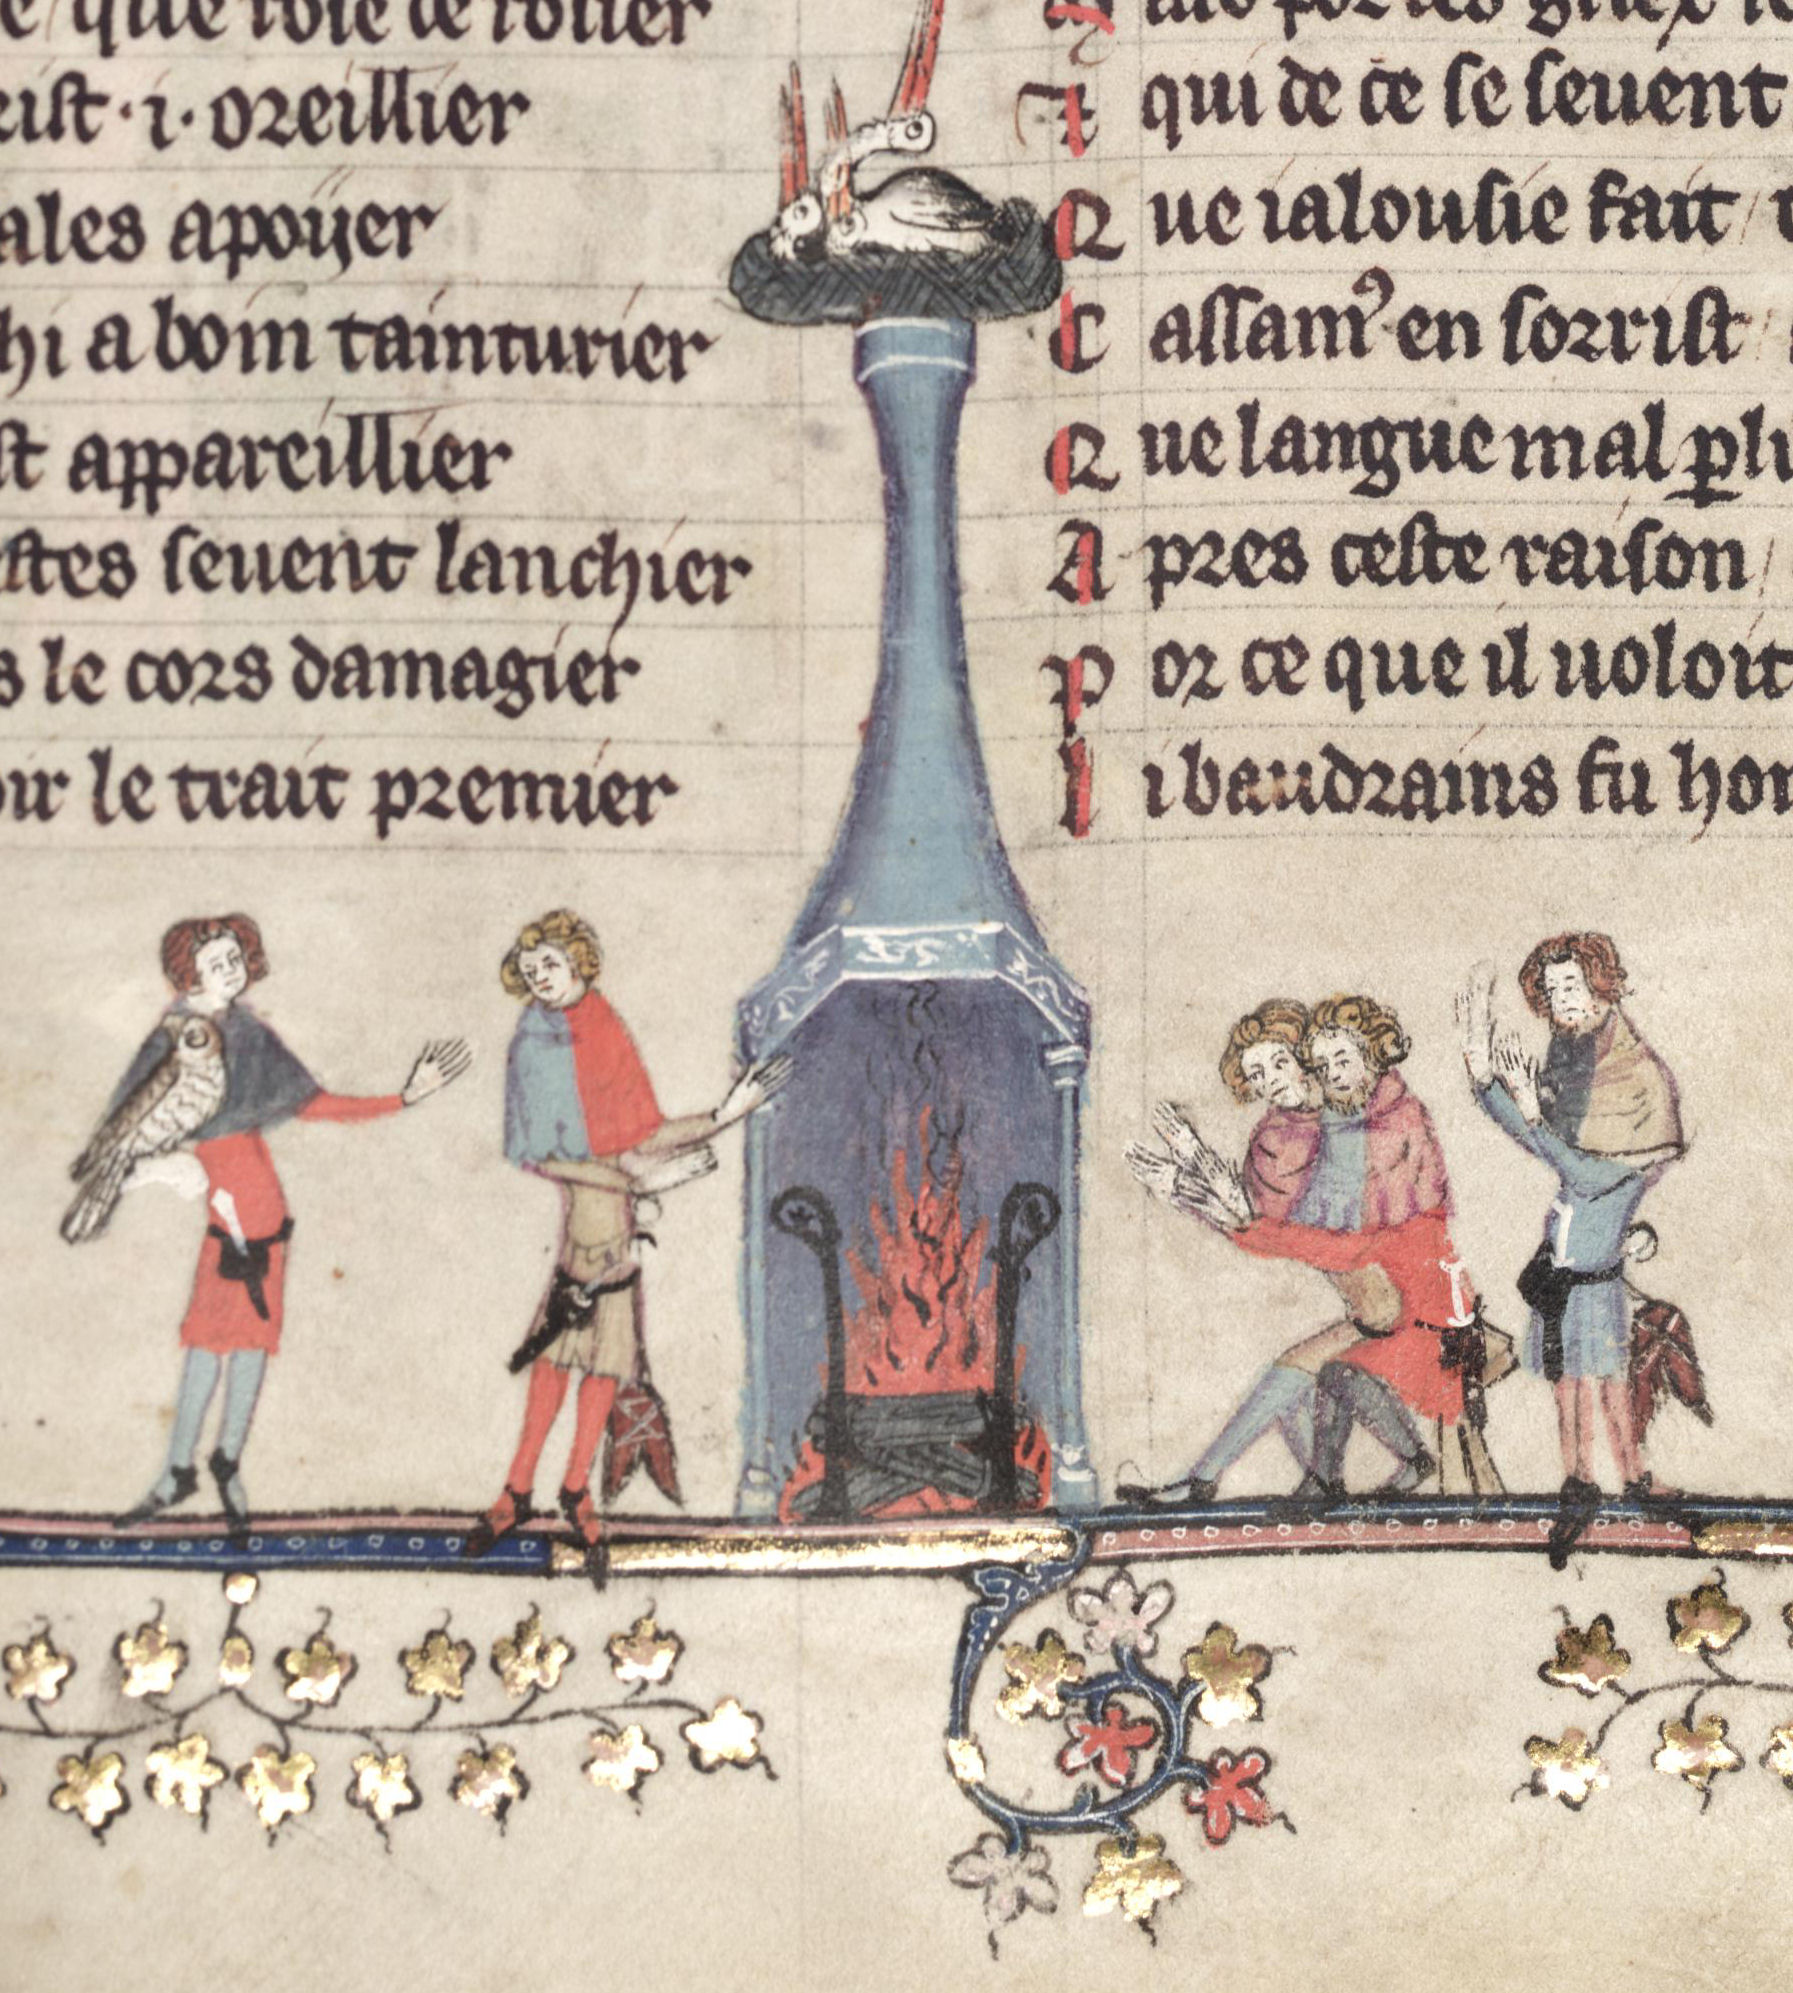 que voie ce rollier
·i· oreillier
ales apoyer
hi a boin tainturier
st appareillier
seuent lanchier
s le cors damagier
oir le trait premier
qui de ce se seuent
Que ialousie fait
Cassamꝰ en sorrist
Que langue mal ꝑli
Apres ceste raison
Por ce que il uoloit
Li baudrains fu hon